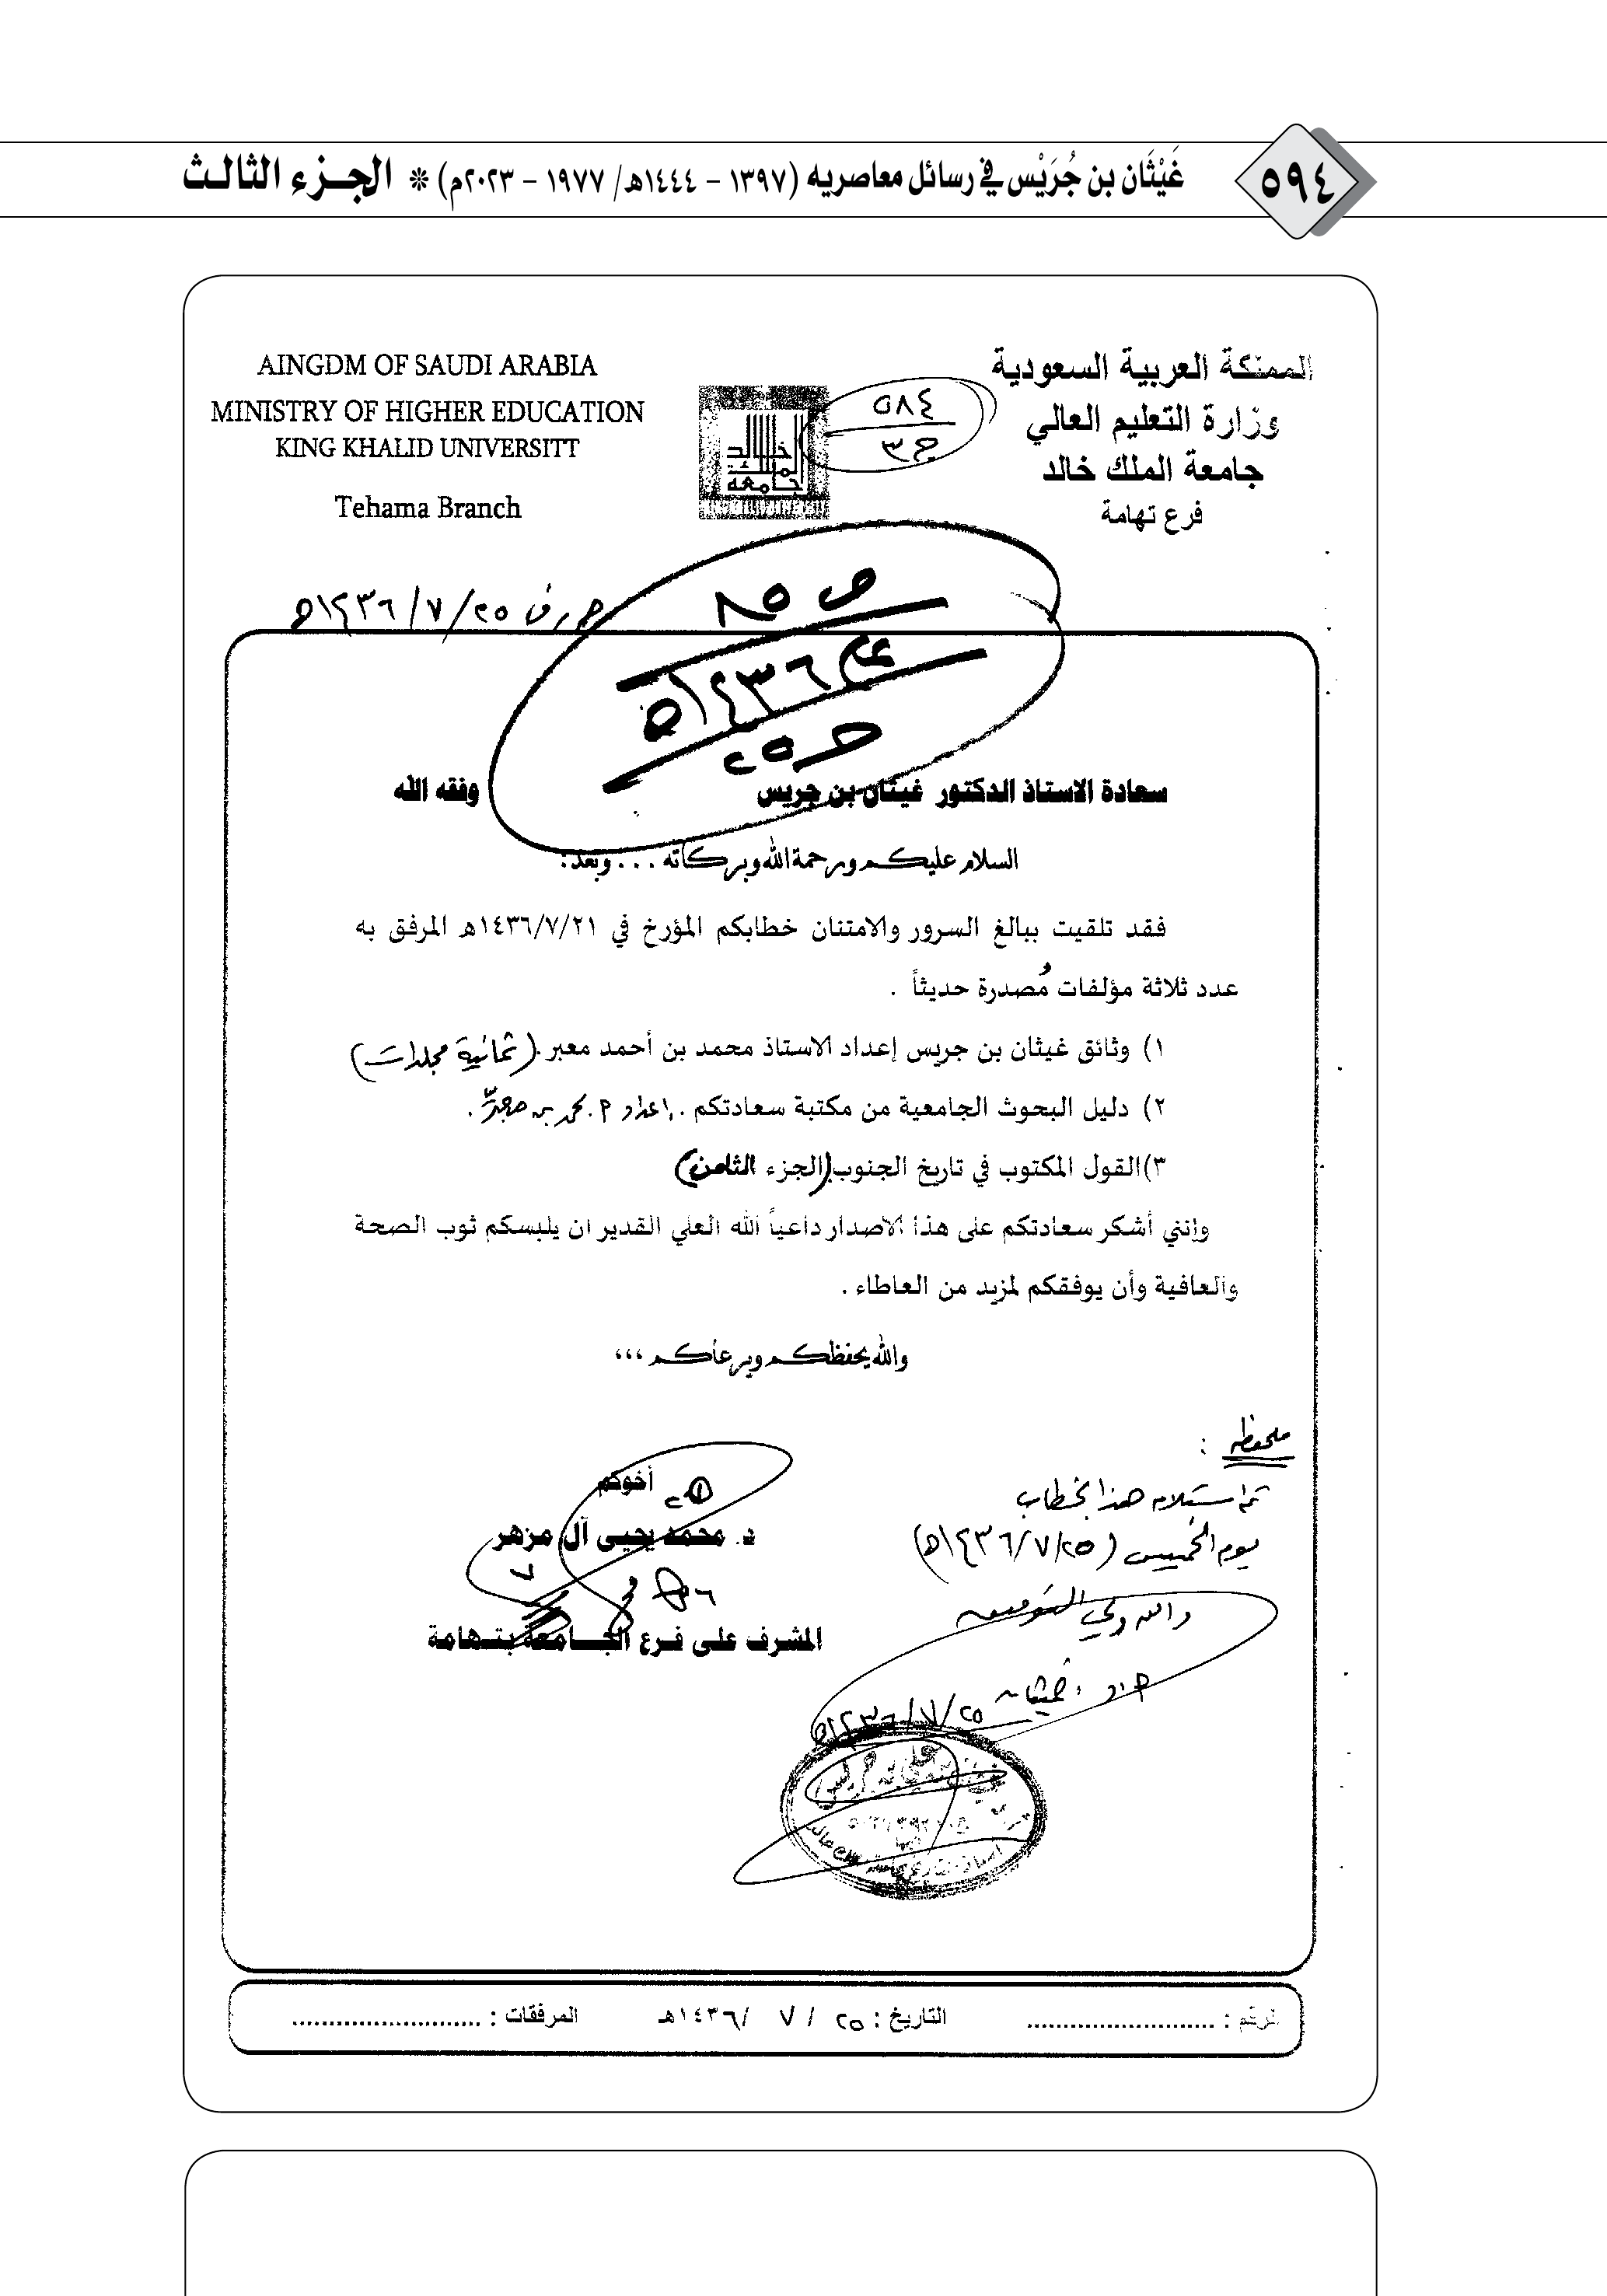 ٥٩٤
غَيْثَان بن جُرَيْس في رسائل معاصريه (١٣٩٧ - ١٤٤٤هـ/ ١٩٧٧ - ٢٠٢٣م) * الجـزء الثالث
المملكة العربية السعودية
وزارة التعليم العالي
جامعة الملك خالد
فرع تهامة
٥٨٤
ج٣
AINGDM OF SAUDI ARABIA
MINISTRY OF HIGHER EDUCATION
KING KHALID UNIVERSITT
Tehama Branch
٢٥/٧/١٤٣٦هـ
ص ٨٥
عام ١٤٣٦هـ
ج٢٥
سعادة الاستاذ الدكتور غيثان بن جريس وفقه الله
السلام عليكم ورحمة الله وبركاته ... وبعد:
فقد تلقيت ببالغ السرور والامتنان خطابكم المؤرخ في ١٤٣٦/٧/٢١هـ المرفق به
عدد ثلاثة مؤلفات مُصدرة حديثاً .
١) وثائق غيثان بن جريس إعداد الاستاذ محمد بن أحمد معبر. (ثمانية مجلدات)
٢) دليل البحوث الجامعية من مكتبة سعادتكم . إعداد م. محمد بن
٣)القول المكتوب في تاريخ الجنوب (الجزء الثامن)
وإنني أشكر سعادتكم على هذا الاصدار داعياً الله العلي القدير ان يلبسكم ثوب الصحة
والعافية وأن يوفقكم لمزيد من العاطاء .
والله يحفظكم ويرعاكم ،،،
ملحوظة :
تم استلام هذا الخطاب
يوم الخميس (٢٥/٧/١٤٣٦هـ)
والله ولي التوفيق
أ.د. غيثان
٢٥/٧/١٤٣٦هـ
أخوكم
د. محمد يحيى آل مزهر
المشرف على فرع الجامعة بتهامة
غيثان بن علي بن جريس
الرقم : ..........................
التاريخ : ٢٥ / ٧ /١٤٣٦هـ
المرفقات : ..........................